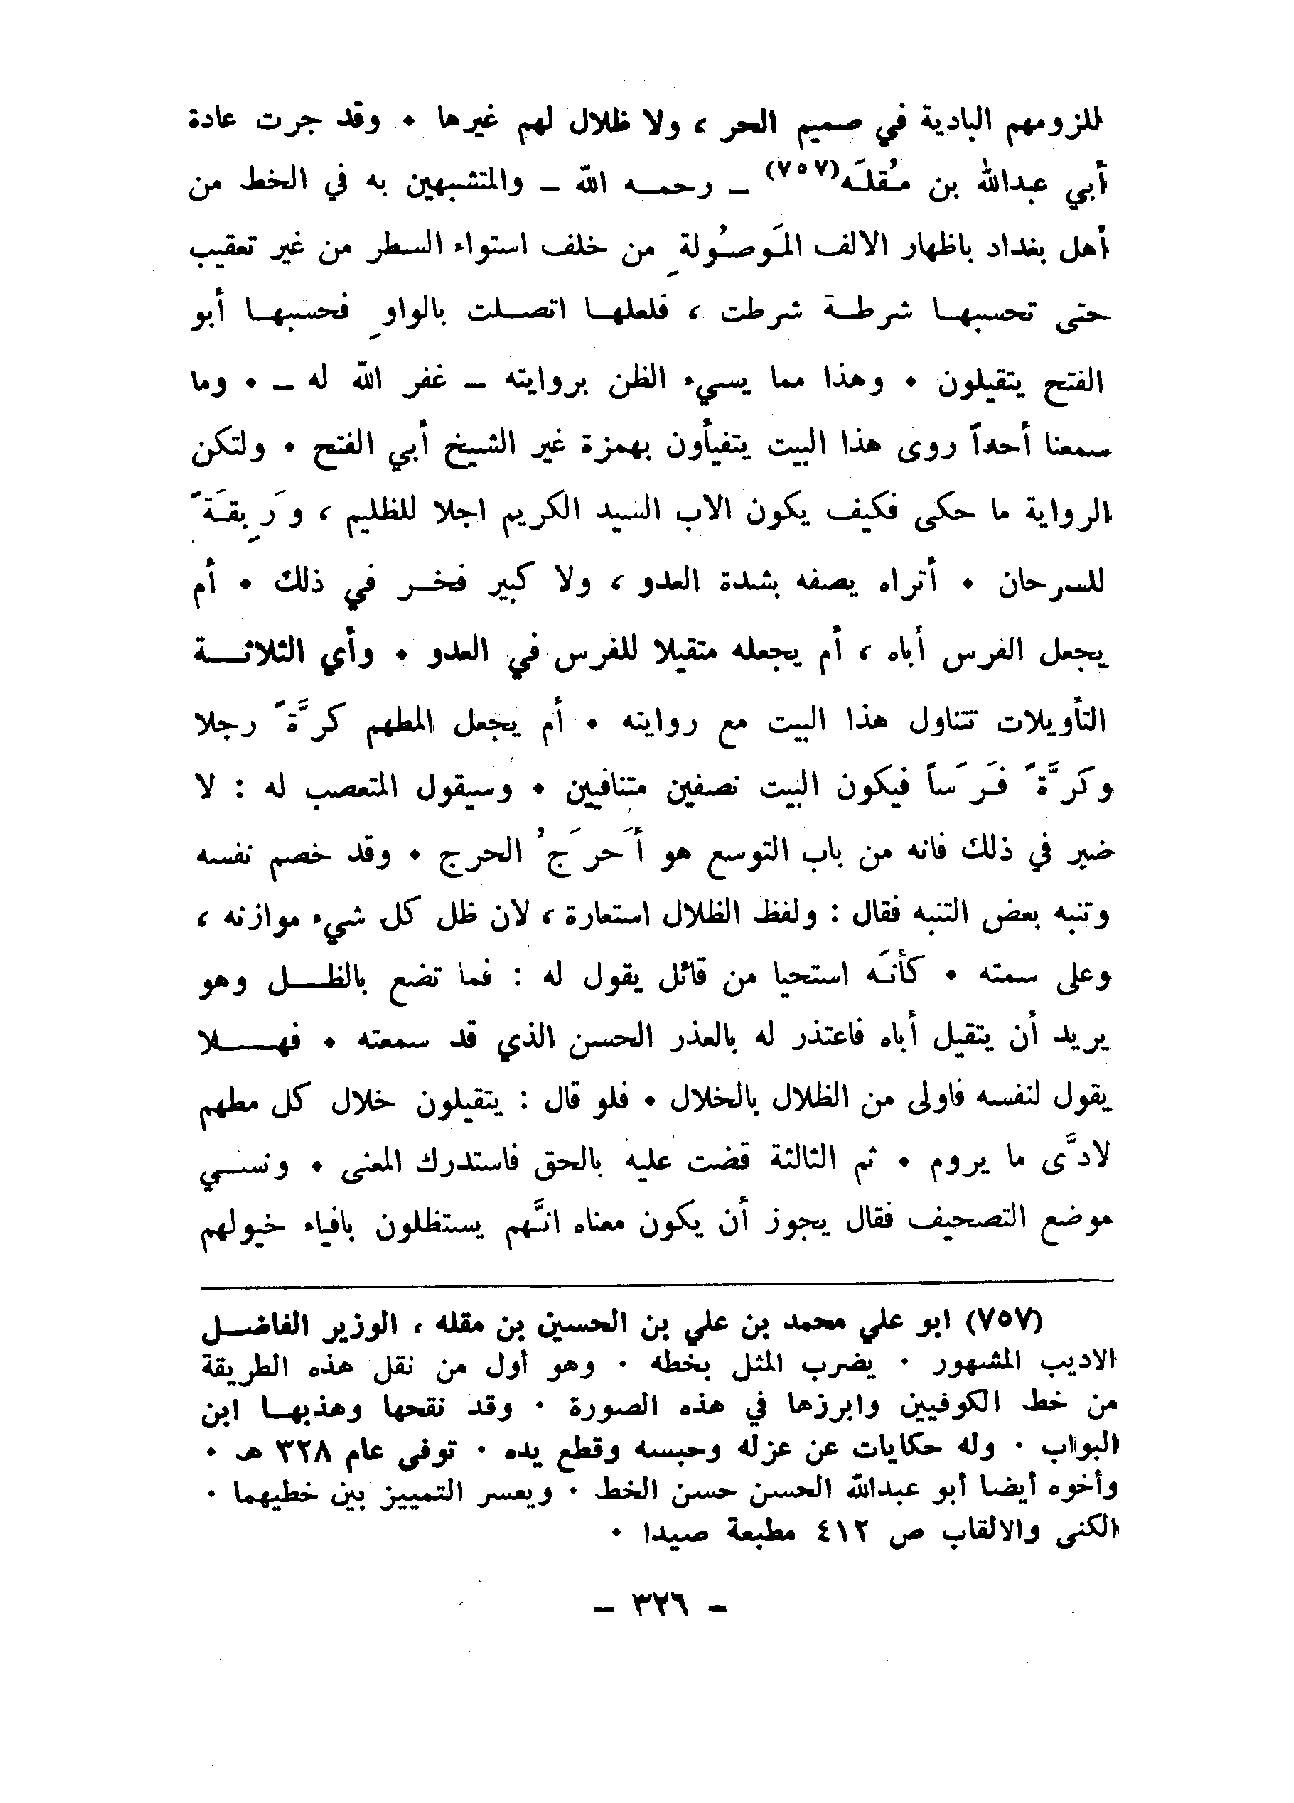 للزومهم البادية في صميم الحر ، ولا ظلال لهم غيرها • وقد جرت عادة
أبي عبدالله بن مُقلَه(٧٥٧) ــ رحمه الله ــ والمتشبهين به في الخط من
أهل بغداد باظهار الالف المَوصُولةِ من خلف استواء السطر من غير تعقيب
حتى تحسبها شرطة شرطت ، فلعلها اتصلت بالواوِ فحسبها أبو
الفتح يتقيلون • وهذا مما يسيء الظن بروايته ــ غفر الله له ــ • وما
سمعنا أحداً روى هذا البيت يتفيأون بهمزة غير الشيخ أبي الفتح • ولتكن
الرواية ما حكى فكيف يكون الاب السيد الكريم اجلا للظليم ، وَرِبقَةً
للسرحان • أتراه يصفه بشدة العدو ، ولا كبير فخر في ذلك • أم
يجعل الفرس أباه ، أم يجعله متقيلا للفرس في العدو • وأي الثلاثة
التأويلات تتناول هذا البيت مع روايته • أم يجعل المطهم كرَّةً رجلا
وكرَّةً فَرَساً فيكون البيت نصفين متنافيين • وسيقول المتعصب له : لا
ضير في ذلك فانه من باب التوسع هو أَحرَجُ الحرج • وقد خصم نفسه
وتنبه بعض التنبه فقال : ولفظ الظلال استعارة ، لان ظل كل شيء موازنه ،
وعلى سمته • كأنَه استحيا من قائل يقول له : فما تضع بالظل وهو
يريد أن يتقيل أباه فاعتذر له بالعذر الحسن الذي قد سمعته • فهلا
يقول لنفسه فاولى من الظلال بالخلال • فلو قال : يتقيلون خلال كل مطهم
لادَّى ما يروم • ثم الثالثة قضت عليه بالحق فاستدرك المعنى • ونسي
موضع التصحيف فقال يجوز أن يكون معناه انَّهم يستظلون بافياء خيولهم
(٧٥٧) ابو علي محمد بن علي بن الحسين بن مقله ، الوزير الفاضل
الاديب المشهور • يضرب المثل بخطه • وهو أول من نقل هذه الطريقة
من خط الكوفيين وابرزها في هذه الصورة • وقد نقحها وهذبها ابن
البواب • وله حكايات عن عزله وحبسه وقطع يده • توفي عام ٣٢٨ هـ •
وأخوه أيضا أبو عبدالله الحسن حسن الخط • ويعسر التمييز بين خطيهما •
الكنى والالقاب ص ٤١٢ مطبعة صيدا •
ــ ٣٢٦ ــ